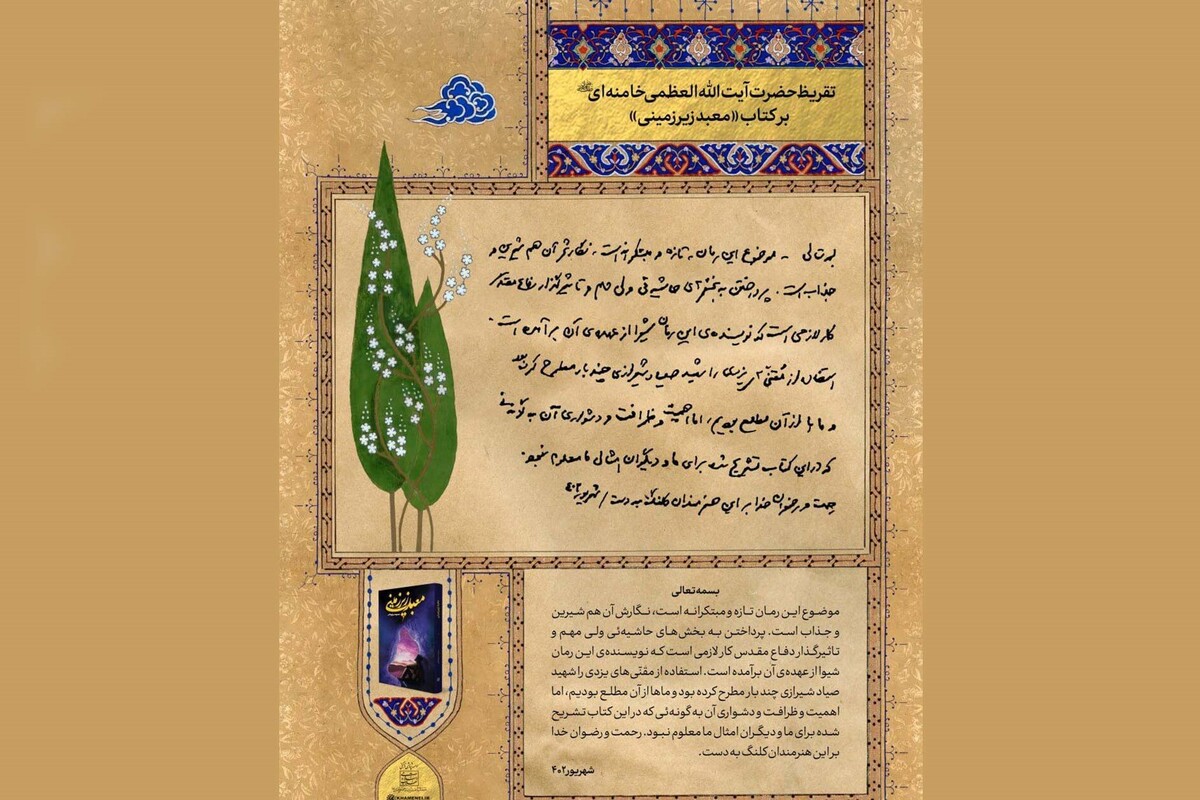 تقریظ حضرت آیت الله العظمی خامنه‌ای
بر کتاب «معبد زیرزمینی»
بسمه تعالی - موضوع این رمان تازه و مبتکرانه است، نگارش آن هم شیرین و
جذاب است. پرداختن به بخش‌های حاشیه‌ئی ولی مهم و تاثیرگذار دفاع مقدس
کار لازمی است که نویسنده‌ی این رمان شیوا از عهده‌ی آن برآمده است.
استفاده از مقنّی‌های یزدی را شهید صیاد شیرازی چند بار مطرح کرده بود
و ماها از آن مطلع بودیم، اما اهمیت و ظرافت و دشواری آن به گونه‌ئی
که در این کتاب تشریح شده برای ما و دیگران امثال ما معلوم نبود.
رحمت و رضوان خدا بر این هنرمندان کلنگ به دست / شهریور ۴۰۲
معبد زیرزمینی
بسمه تعالی
موضوع این رمان تازه و مبتکرانه است، نگارش آن هم شیرین
و جذاب است. پرداختن به بخش‌های حاشیه‌ئی ولی مهم و
تاثیرگذار دفاع مقدس کار لازمی است که نویسنده‌ی این رمان
شیوا از عهده‌ی آن برآمده است. استفاده از مقنّی‌های یزدی را شهید
صیاد شیرازی چند بار مطرح کرده بود و ماها از آن مطلع بودیم، اما
اهمیت و ظرافت و دشواری آن به گونه‌ئی که در این کتاب تشریح
شده برای ما و دیگران امثال ما معلوم نبود. رحمت و رضوان خدا
بر این هنرمندان کلنگ به دست.
شهریور ۴۰۲
KHAMENEI.IR